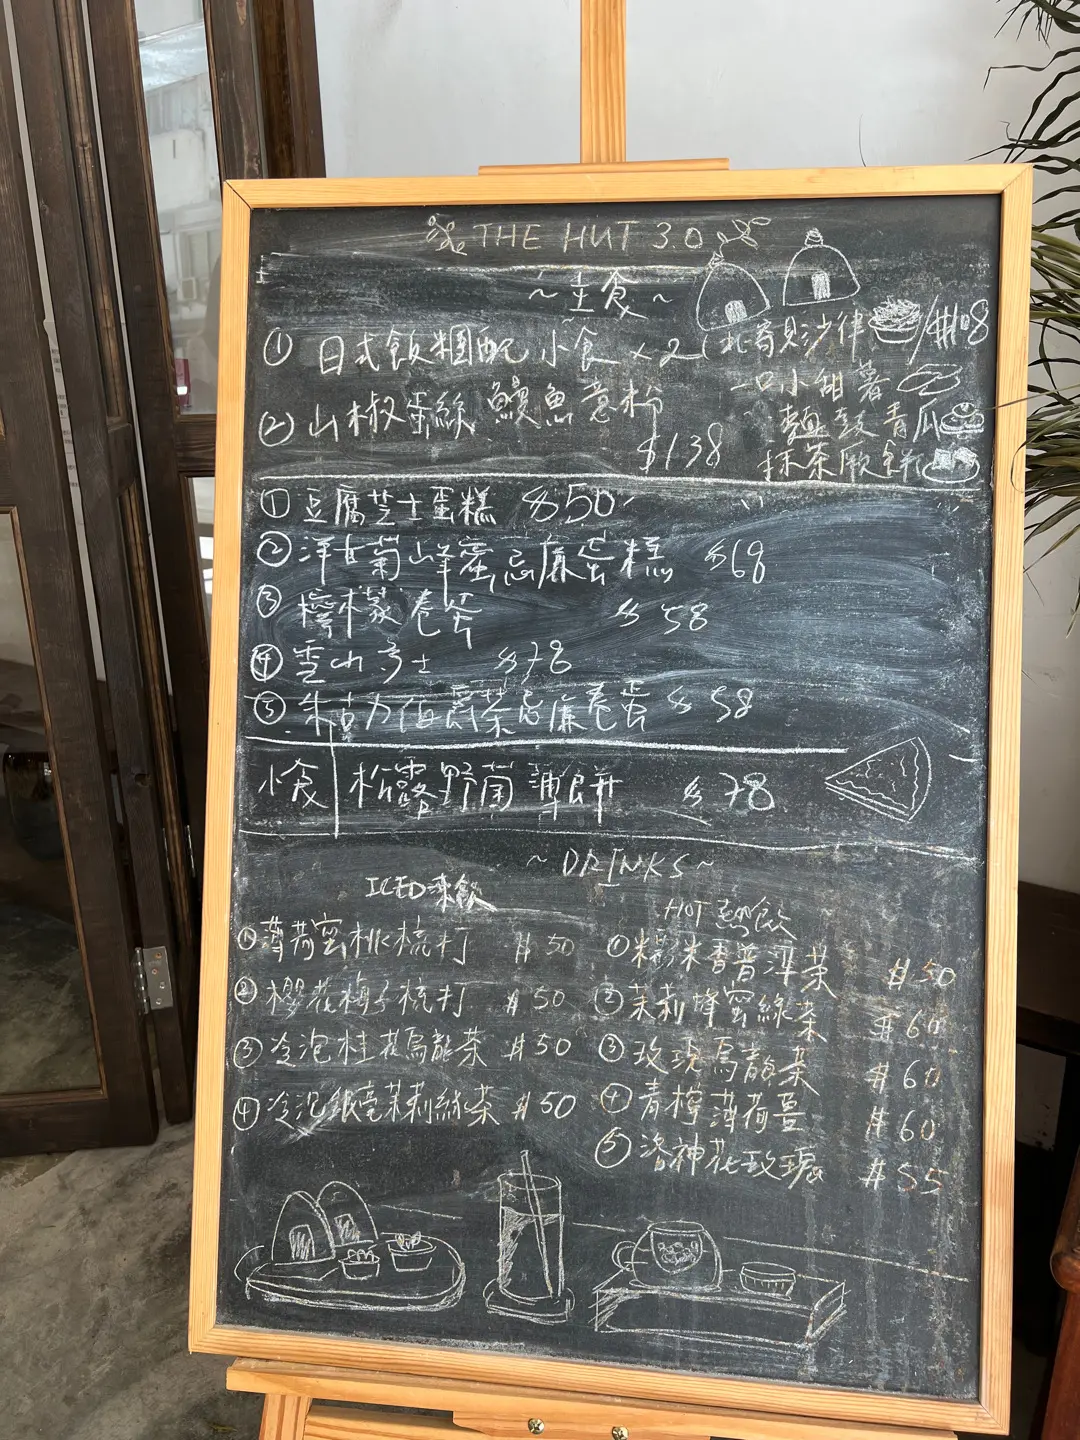 THE HUT 3.0
~主食~
① 日式飯糰配小食 x 2
沙律 /
一口小甜薯
麵豉青瓜
抹茶蕨餅
② 山椒蛋絲鰻魚意粉
$138
① 豆腐芝士蛋糕 $50
② 洋甘菊蜂蜜忌廉蛋糕 $68
③ 檸檬卷蛋 $58
④ 雪山多士 $78
⑤ 朱古力伯爵茶忌廉卷蛋 $58
小食 松露野菌薄餅 $78
~DRINKS~
ICED 凍飲
① 薄荷蜜桃梳打 $50
② 櫻花梅子梳打 $50
③ 冷泡桂花烏龍茶 $50
④ 冷泡銀毫茉莉綠茶 $50
HOT 熱飲
① 糯米香普洱茶 $50
② 茉莉蜂蜜綠茶 $60
③ 玫瑰烏龍茶 $60
④ 青檸薄荷薑 $60
⑤ 洛神花玫瑰 $55